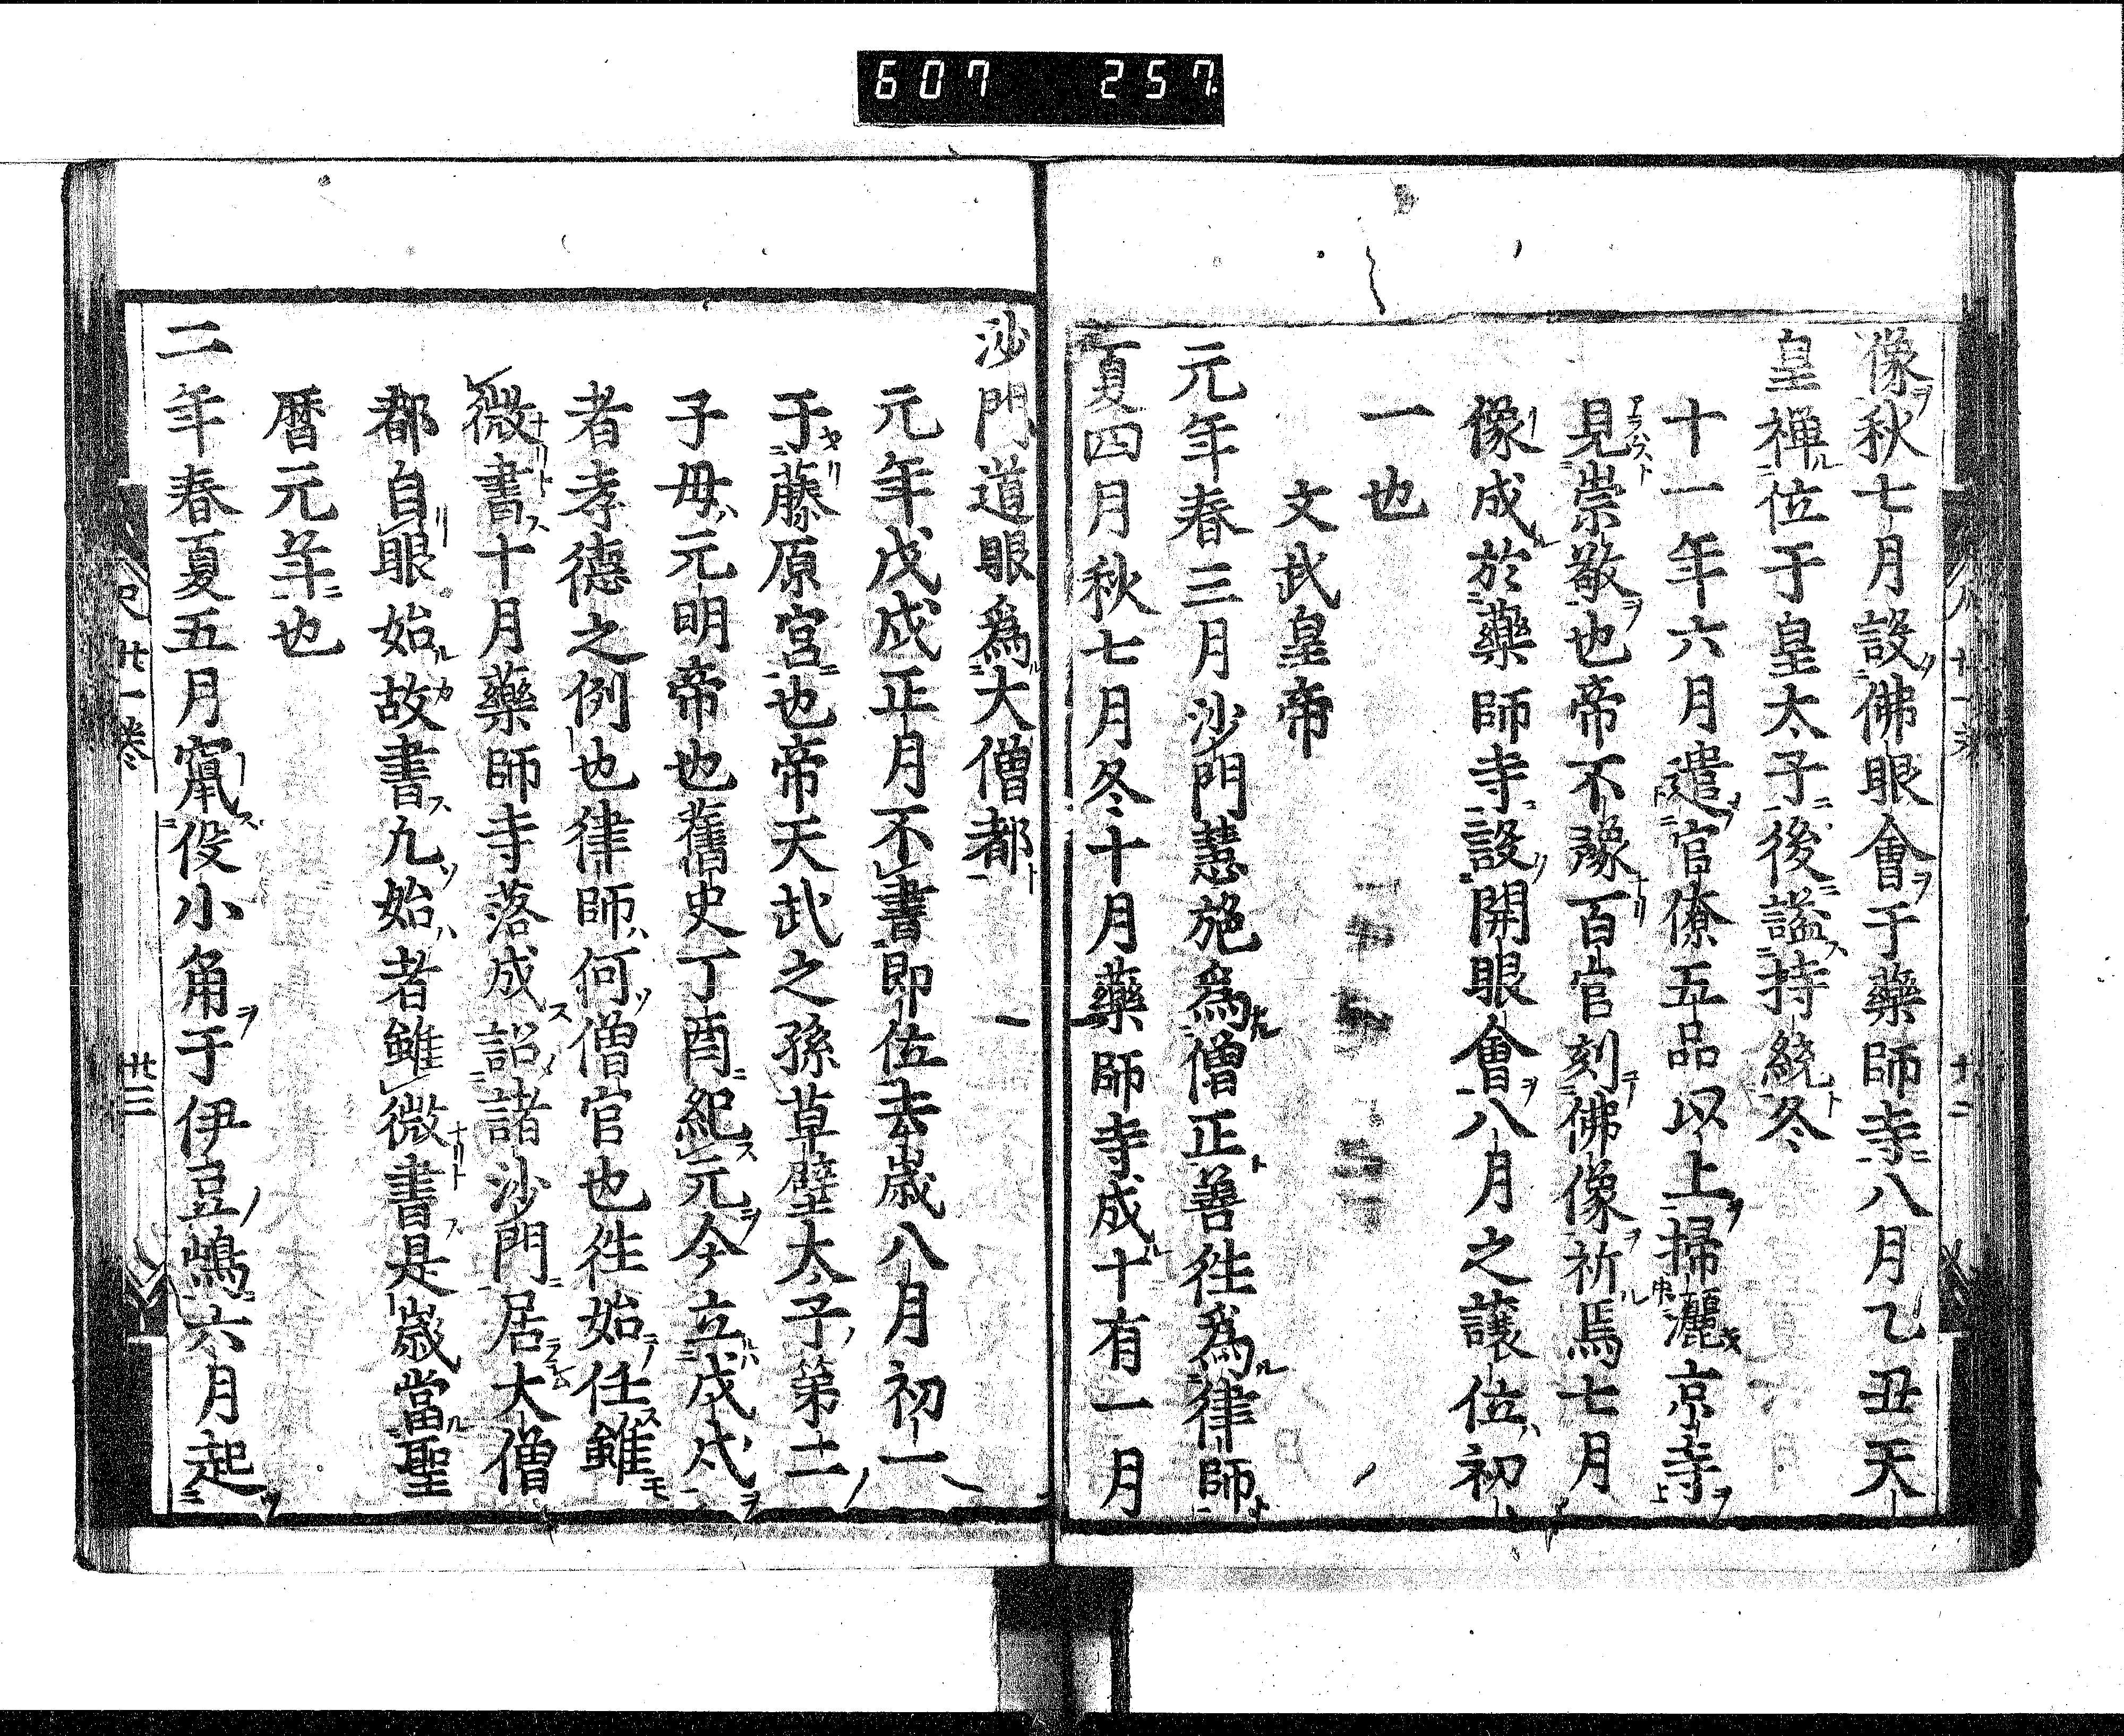 607 257
像秋七月設佛眼會于藥師寺八月乙丑天
皇禪位于皇太子後謚持統冬
十一年六月遣官僚五品以上掃灑京寺
見崇敬也帝不豫百官刻佛像祈焉七月
像成於藥師寺設開眼會八月之讓位初
一也
文武皇帝
元年春三月沙門慧施爲僧正善往爲律師
夏四月秋七月冬十月藥師寺成十有一月
沙門道眼爲大僧都
元年戊戌正月不書即位去歲八月初一
于藤原宮也帝天武之孫草壁太子第二
子毋元明帝也舊史丁酉紀元今立戊戌
者孝德之例也律師何僧官也徃始任雖
微書十月藥師寺落成詔諸沙門居大僧
都自眼始故書九始者雖微書是歲當聖
曆元年也
二年春夏五月竄役小角于伊豆嶋六月起
廿一卷
廿三